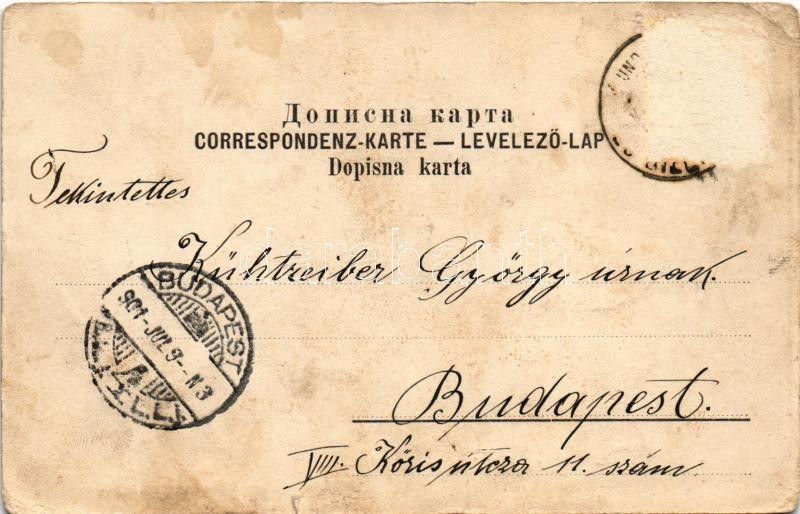 Дописна карта
CORRESPONDENZ-KARTE — LEVELEZŐ-LAP
Dopisna karta
Tekintettes
Kühtreiber György úrnak.
Budapest.
VIII. Kőris útcza 11. szám.
BUDAPEST
901 - JUL. 9 - N3
darabanth